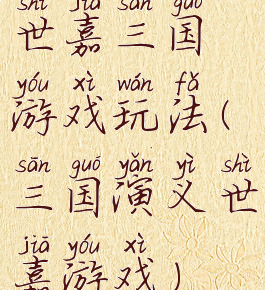 shì jiā sān guó
世嘉三国
yóu xì wán fǎ
游戏玩法(
sān guó yǎn yì shì
三国演义世
jiā yóu xì
嘉游戏)